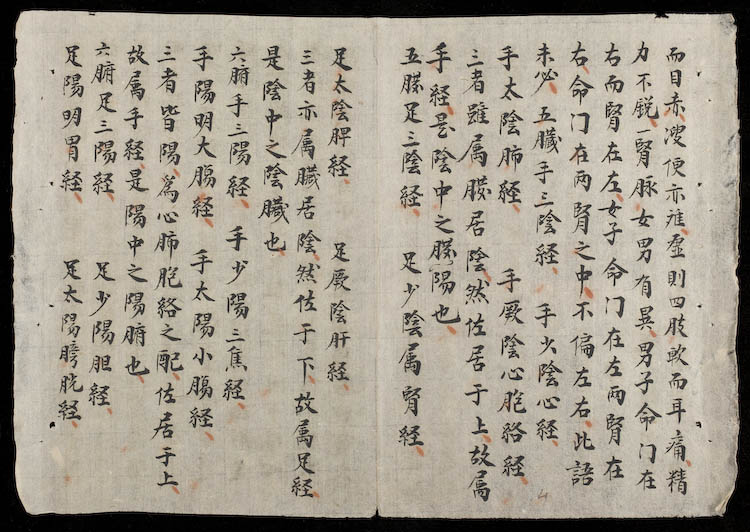 而目赤溲便亦难虚則四肢軟而耳痛精
力不脱一腎脉女男有異男子命门在
右而腎在左女子命门在左两腎在
右命门在两腎之中不偏左右此語
未必五臓手三陰経 手少陰心経
手太陰肺経 手厥陰心胞絡経
三者雖属臓居陰然位居于上故属
手経是陰中之陽也
五臓足三陰経 足少陰属腎経
足太陰脾経 足厥陰肝経
三者亦属臓居陰然位于下故属足経
是陰中之陰臓也
六腑手三陽経 手少陽三焦経
手陽明大腸経 手太陽小腸経
三者皆陽為心肺胞絡之配位居于上
故属手経是陽中之陽腑也
六腑足三陽経 足少陽胆経
足陽明胃経 足太陽膀胱経